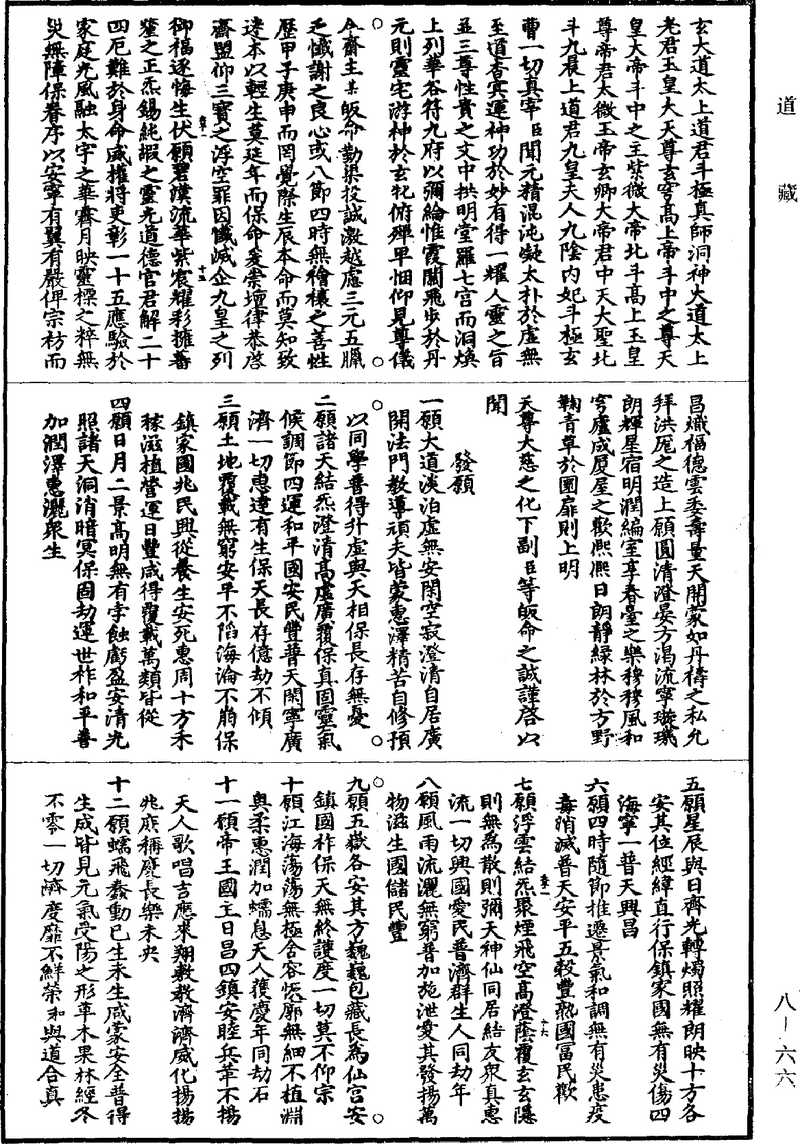 道藏
八—六六
玄大道太上道君斗極真師洞神大道太上
老君玉皇大天尊玄穹高上帝斗中之尊天
皇大帝斗中之主紫微大帝北斗高上玉皇
尊帝君太微玉帝玄卿大帝君中天大聖北
斗九晨上道君九皇夫人九陰內妃斗極玄
曹一切真宰臣聞元精混沌凝太朴於虛無
至道杳冥運神功於妙有得一耀人靈之旨
並三尊性貴之文中拱明堂羅七宮而洞煥
上列華谷符九府以彌綸惟霞關飛步於丹
元則靈宅游神於玄牝俯殫早悃仰見尊儀
今齋主某皈命勤渠投誠激越慮三元五臘
乏懺謝之良心或八節四時無禬禳之善性
歷甲子庚申而罔覺際生辰本命而莫知致
違本以輕生莫延年而保命爰崇壇律恭啓
齋盟仰三寶之浮空罪因懺滅企九皇之列
御福逐悔生伏願碧漢流華紫宸耀彩擁蕃
釐之正炁錫純嘏之靈光道德官君解二十
四厄難於身命威權將吏彰一十五應驗於
家庭光風融太宇之華霽月映靈標之粹無
災無障保眷序以安寧有翼有嚴俾宗枋而
昌熾福德雲委壽量天開蒙如丹禱之私允
拜洪厖之造上願圓清澄晏方濁流寧璇璣
朗輝星宿明潤編室享春臺之樂穆穆風和
穹廬成厦屋之歡熙熙日朗靜綠林於方野
鞠青草於圜扉則上明
天尊大慈之化下副臣等皈命之誠謹啓以
聞
發願
一願大道淡泊虛無安閑空寂澄清自居廣
開法門教導頑夫皆蒙惠澤精苦自修預
以同學普得升虛與天相保長存無憂
二願諸天結炁澄清高虛廣覆保真固靈氣
候調節四運和平國安民豐普天閑寧廣
濟一切惠逮有生保天長存億劫不傾
三願土地覆載無窮安平不陷海淪不崩保
鎮家國兆民興從養生安死惠周十方禾
稼滋植營運日豐咸得覆載萬類皆從
四願日月二景高明無有孛蝕虧盈安清光
照諸天洞消暗冥保固劫運世祚和平普
加潤澤惠灑衆生
五願星辰與日齊光轉燭照耀朗映十方各
安其位經緯直行保鎮家國無有災傷四
海寧一普天興昌
六願四時隨節推遷景氣和調無有災患疫
毒消滅普天安平五穀豐熟國富民歡
七願浮雲結炁聚煙飛空高澄蔭覆玄玄隱
則無為散則彌天神仙同居結友衆真惠
流一切興國愛民普濟群生人同劫年
八願風雨流灑無窮普加施泄愛其發揚萬
物滋生國儲民豐
九願五嶽各安其方巍巍包藏長為仙宮安
鎮國祚保天無終護度一切莫不仰宗
十願江海蕩蕩無極含容恢廓無細不植淵
奧柔惠潤加蠕息天人獲慶年同劫石
十一願帝王國主日昌四鎮安睦兵革不揚
天人歌唱吉應來翔敦敦濟濟威化揚揚
兆庶稱慶長樂未央
十二願蠕飛蠢動已生未生咸蒙安全普得
生成皆見元氣受陽之形草木果林經冬
不零一切濟度靡不鮮榮和與道合真